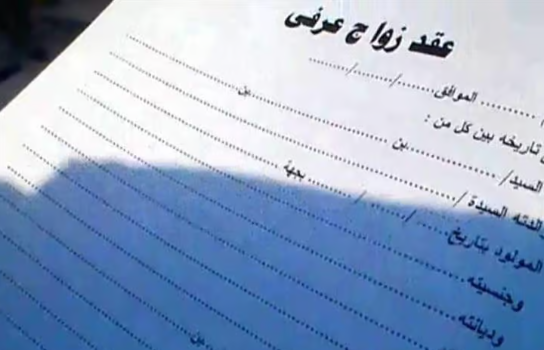 عقد زواج عرفى
........ الموافق....../....../......
تاريخه بين كل من :
السيد/ .................. بن .................. بن ..................
السيدة / ..................
المولود بتاريخ ....../....../...... بجهة ..................
وجنسيته ..................
وديانته ..................
بن ..................